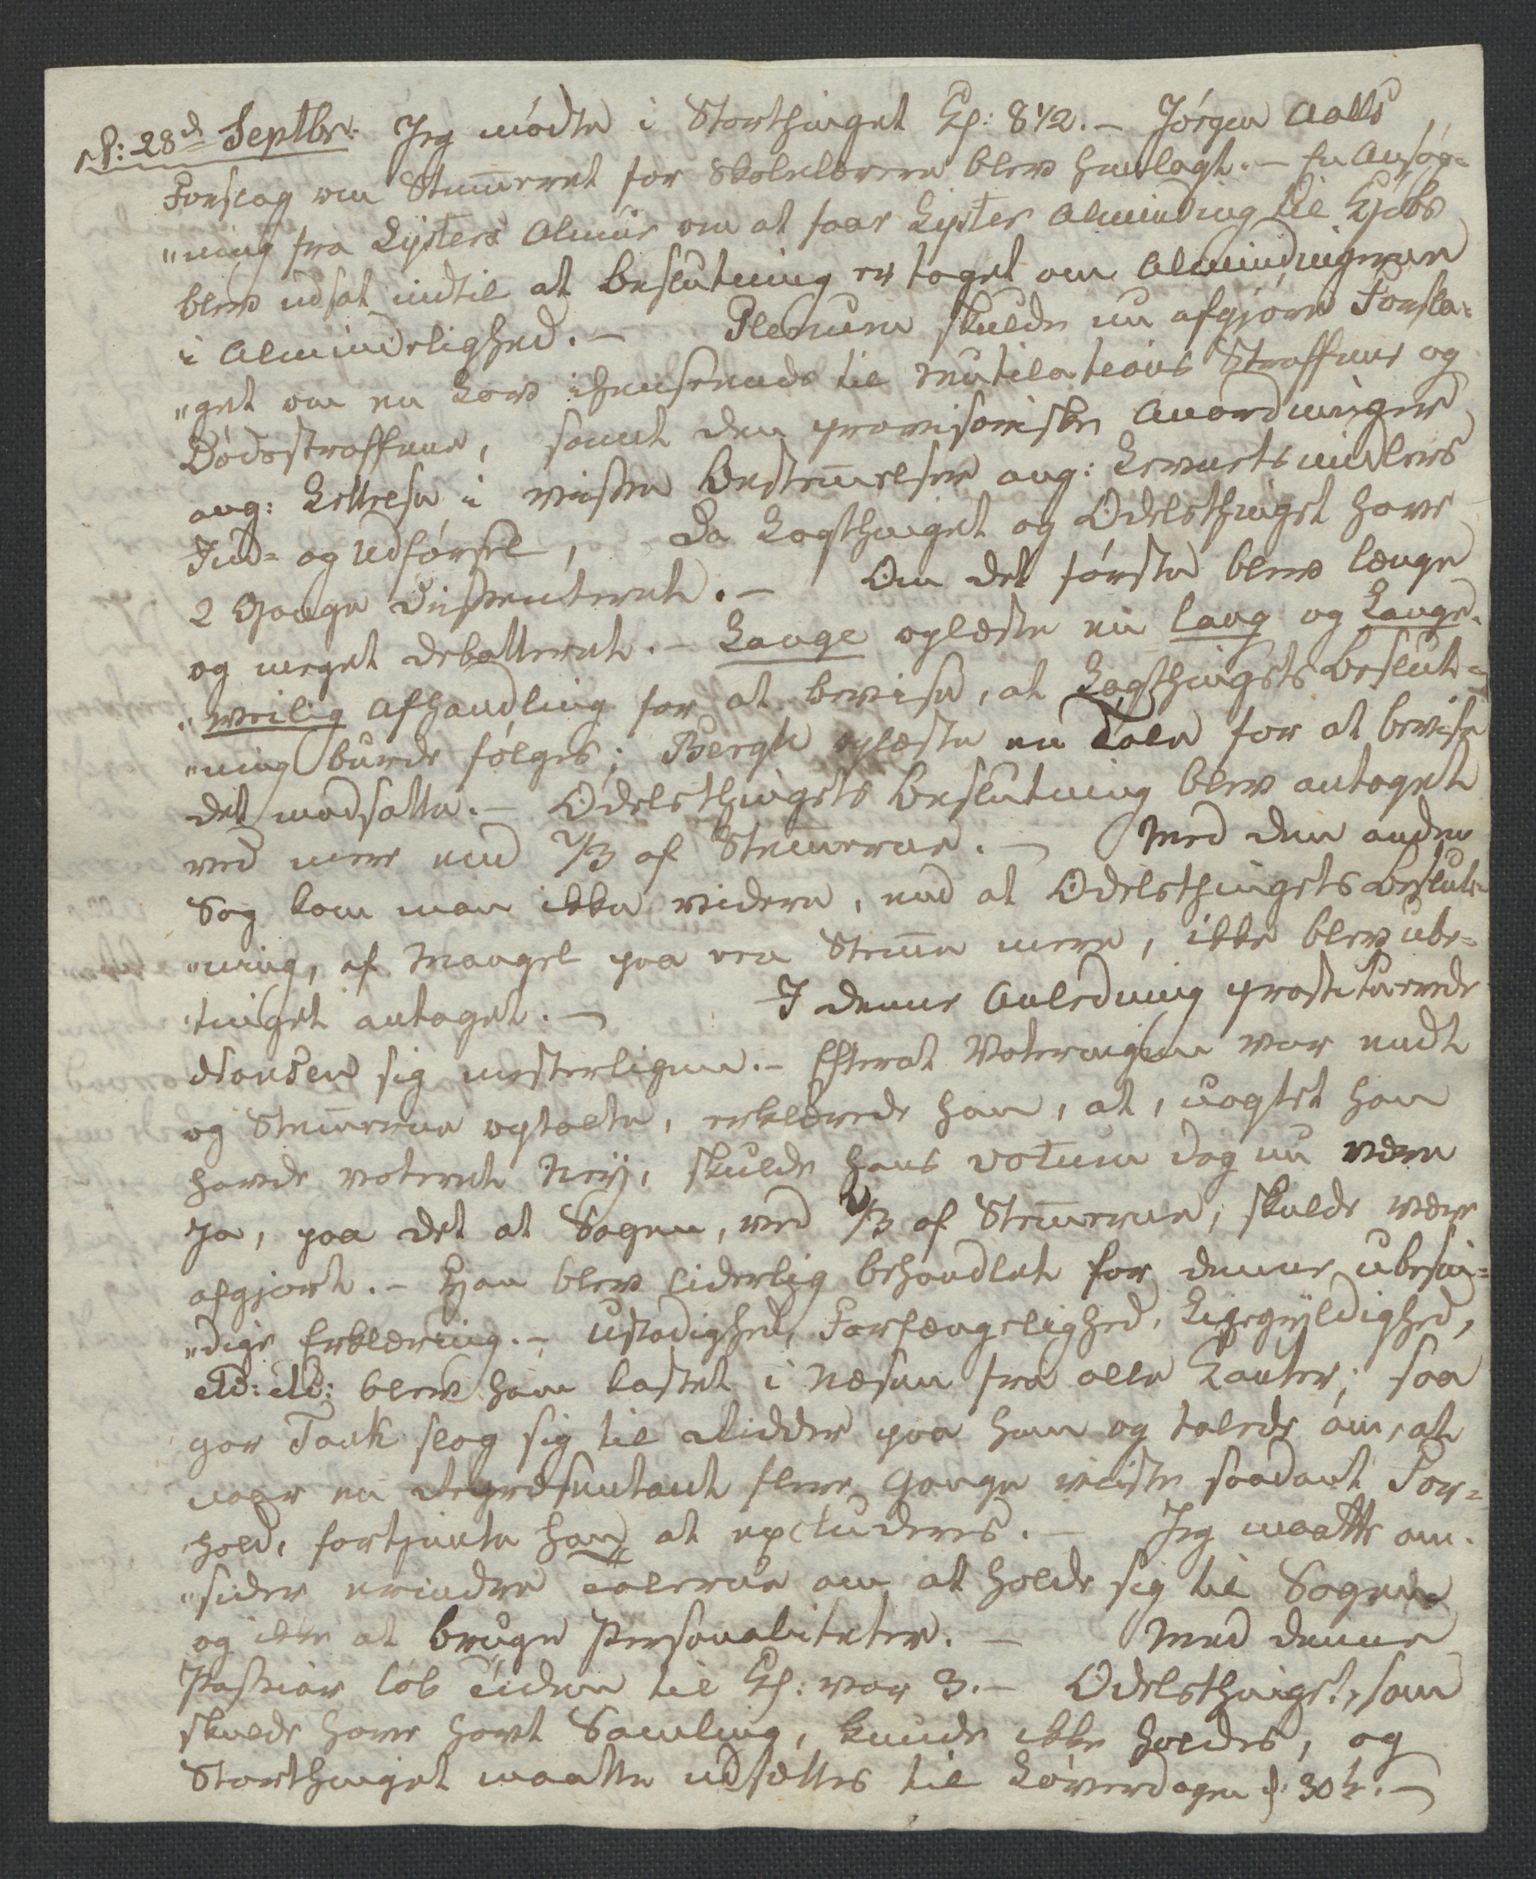 d: 28d Septbr. Jeg mödte i Storthinget Kl: 8 1/2. – Jörgen Aalls
Forslag om Stemeret for Skolelærere blev henlagt. – En Ansøg-
"ning fra Lysters Almue om at faae Lyster Alminding til Kjøbs
blev udsat indtil at Beslutning er taget om Almindingerne
i Almindelighed. – Plenum skulde nu afgjøre Forsla-
"get om en Lov ihenseende til Mutilations Straffene og
Dödsstraffene, samt den provisoriske Anordninger
ang: Lettelse i visse Bestemelser ang: Levnetsmidlers
Ind- og Udförsel, da Lagthinget og Odelsthinget have
2 Gange dissenteret. – Om det förste blev længe
og meget debatteret. – Lange oplæste en lang og Lange-
"weilig Afhandling for at bevise, at Lagthingets Beslut-
"ning burde fölges; Bergh oplæste en Tale for at bevise
det modsatte. – Odelsthingets Beslutning blev antaget
ved mere end 2/3 af Stemerne. – Med den anden
Sag kom man ikke videre, end at Odelsthingets Beslut-
"ning, af Mangel paa een Steme mere, ikke blev ube-
"tinget antaget. – I denne Anledning prostituerede
Hansen sig mesterligen. – Efterat Voteringen var endt
og Stemerne optalte, erklærede han, at, uagtet han
havde voteret Nej, skulde hans votum dog nu være
Ja, paa det at Sagen, ved 2/3 af Stemerne, skulde være
afgjort. – Han blev liderlig behandlet for denne ubesin-
"dige Erklæring. – Ustadighed, Forfængelighed, Ligegyldighed,
etc: etc: blev ham kastet i Næsen fra alle Kanter; saa
gar Tank slog sig til Ridder paa ham og talede om, at
naar en Repræsentant flere Gange viiste saadant For-
"hold, fortjente han at excluderes. – Jeg maatte om-
"sider erindre Talerne om at holde sig til Sagen
og ikke at bruge Personaliteter. – Med denne
Passiar löb Tiden til Kl: var 3. – Odelsthinget, som
skulde have havt Samling, kunde ikke holdes, og
Storthinget maatte udsættes til Löverdagen d: 30te. –